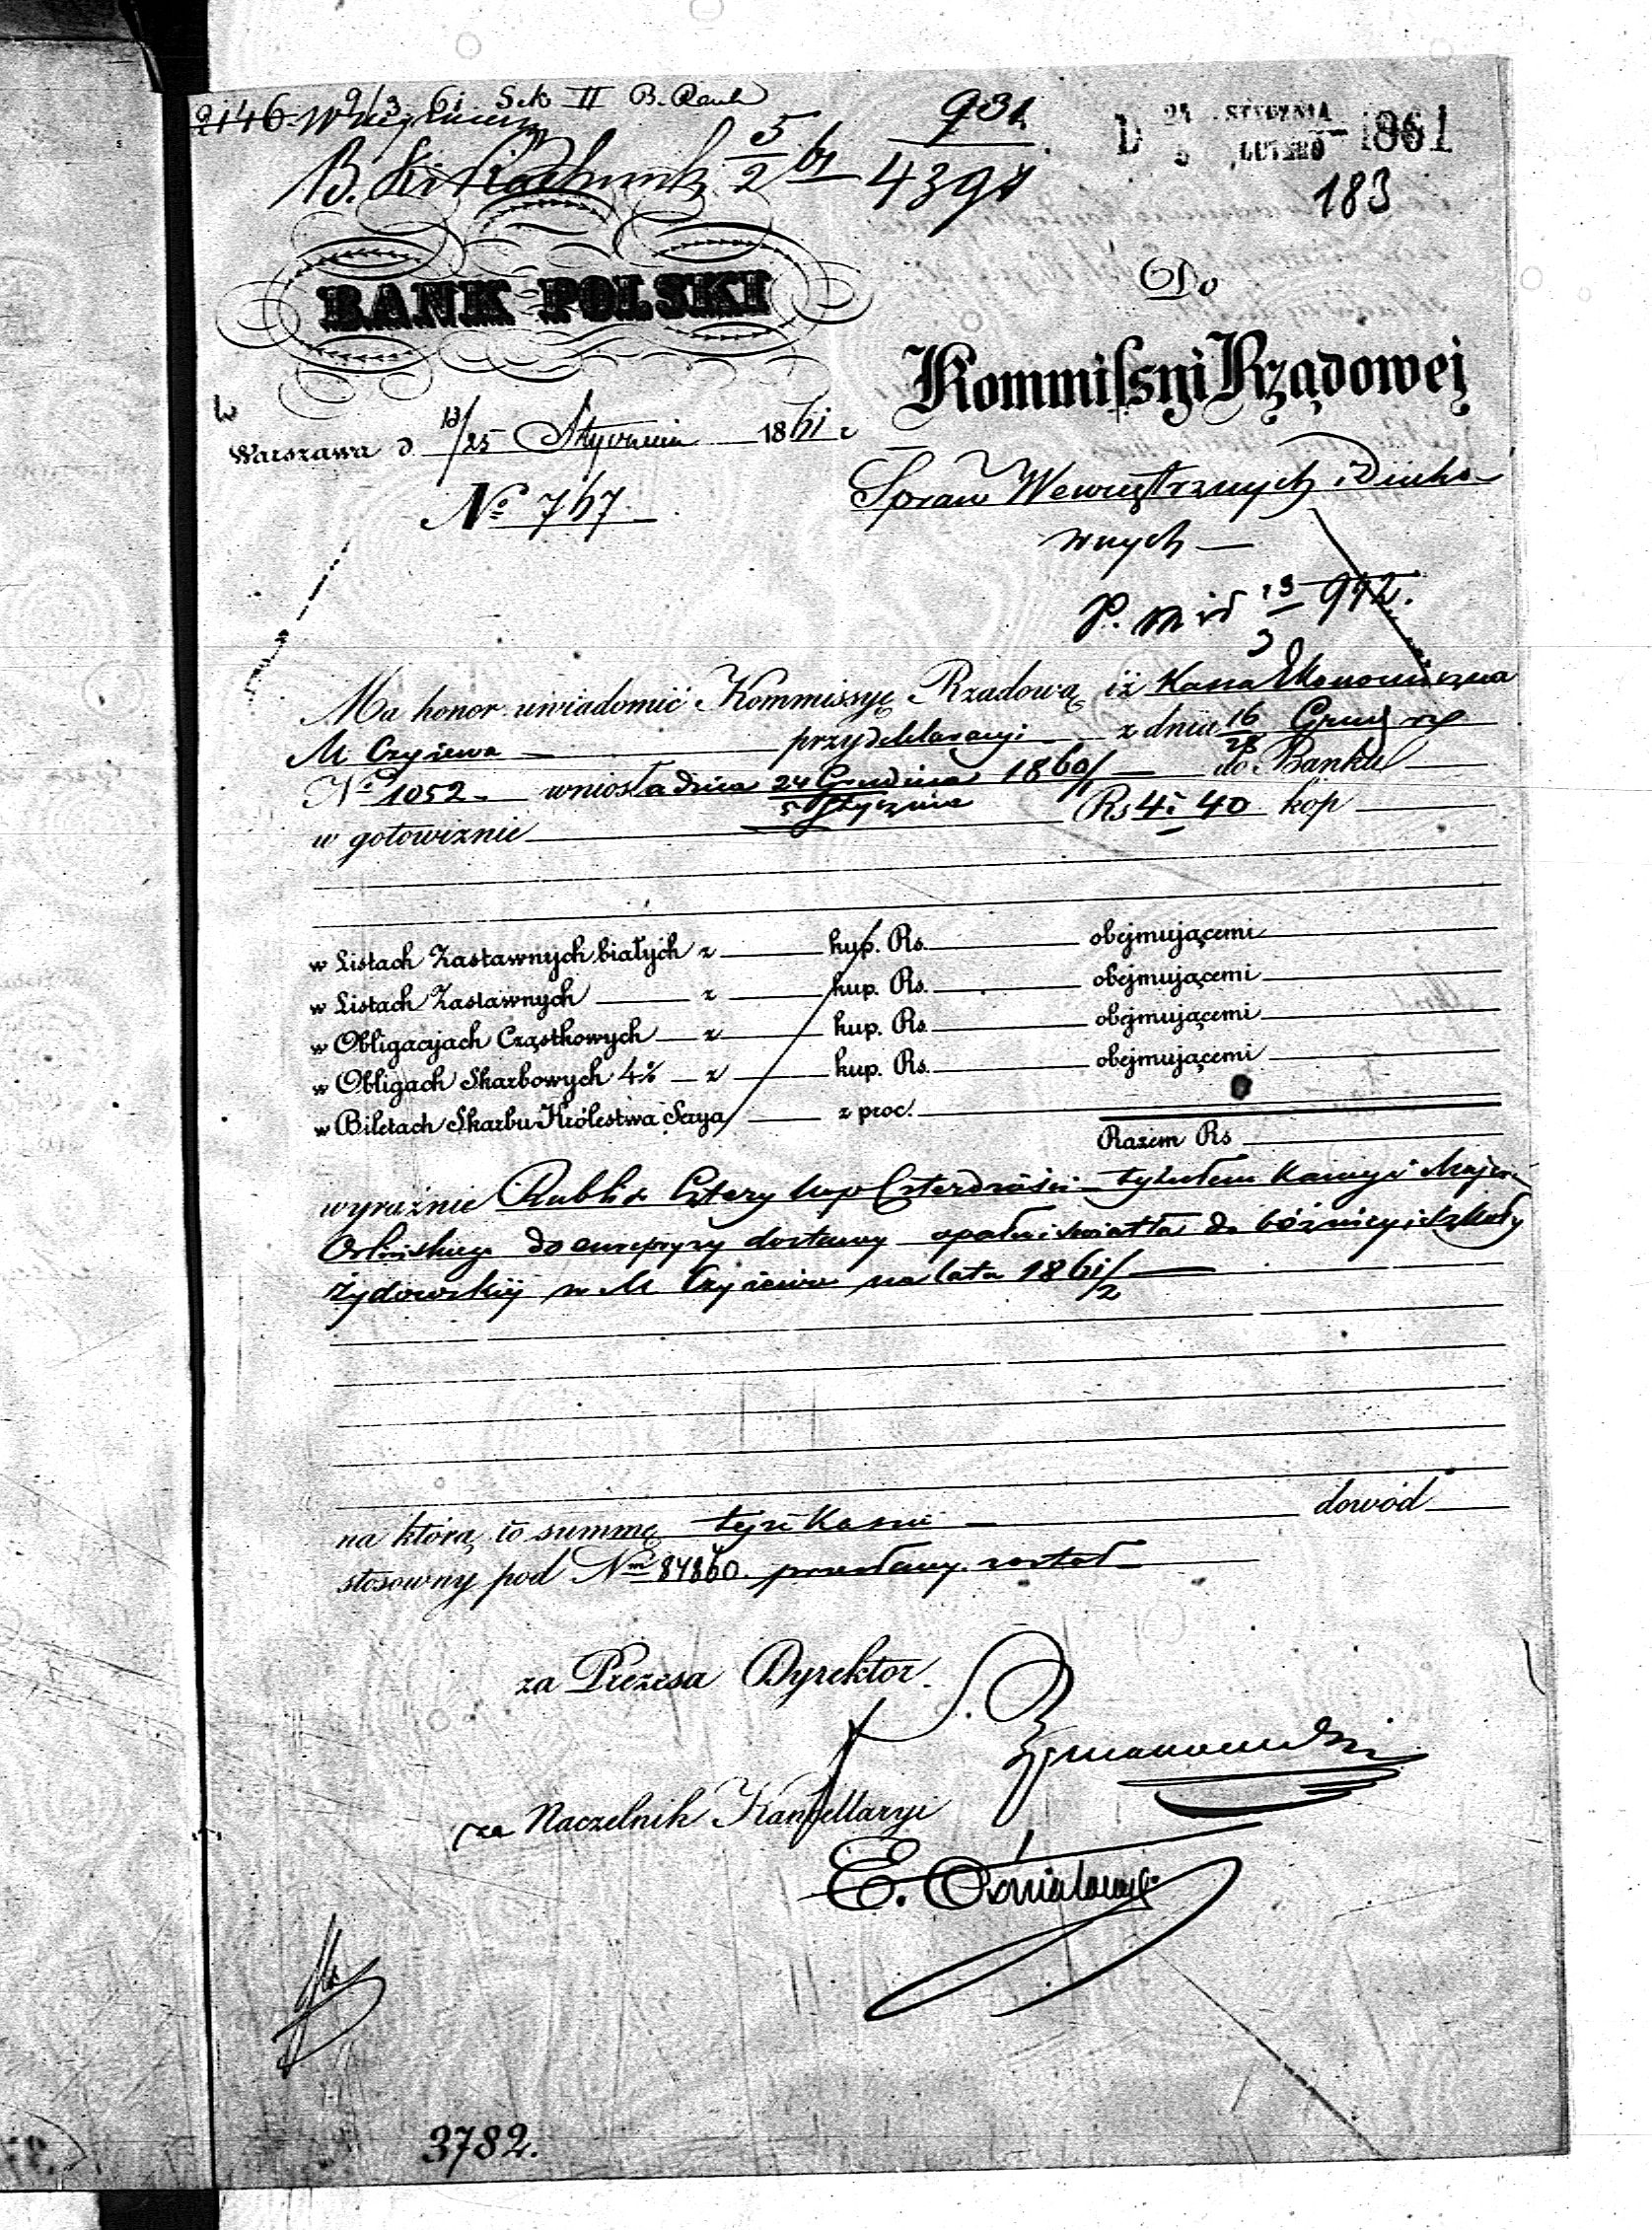 2146 9/3 61 Sek II B. Rach
931
4397
5/2 61
D 24 STYCZNIA 1861
5 LUTEGO
183
BANK POLSKI
Do
Kommissyi Rządowej
w
Warszawa d. 13/25 Stycznia 1861 r.
Spraw Wewnętrznych i Ducho-
wnych —
No 767.
Ma honor uwiadomić Kommissyę Rządową iż Kassa Ekonomiczna
M Czyżewa przy deklaracyi z dnia 16/28 Grud rz
No 1052 wniosła dnia 24 Grudnia 1860/ do Banku
5 Stycznia
w gotowiznie Rs 4: 40 kop
w Listach Zastawnych białych z kup. Rs. obejmującemi
w Listach Zastawnych z kup. Rs. obejmującemi
w Obligacyjach Cząstkowych z kup. Rs. obejmującemi
w Obligach Skarbowych 4% z kup. Rs. obejmującemi
w Biletach Skarbu Królestwa Serya z proc.
Razem Rs
wyraźnie Rubli sr Cztery kop Czterdzieści tytułem kaucyi Majera
Orlińskiego do entrepryzy dostawy opału i światła do bóżnicy i szkoły
Żydowskiej w M Czyżewie na lata 1861/2
na którą to summę tejże Kassie dowód
stosowny pod Nm 84860. przesłany został
za Prezesa Dyrektor.
za Naczelnik Kancellaryi
3782.